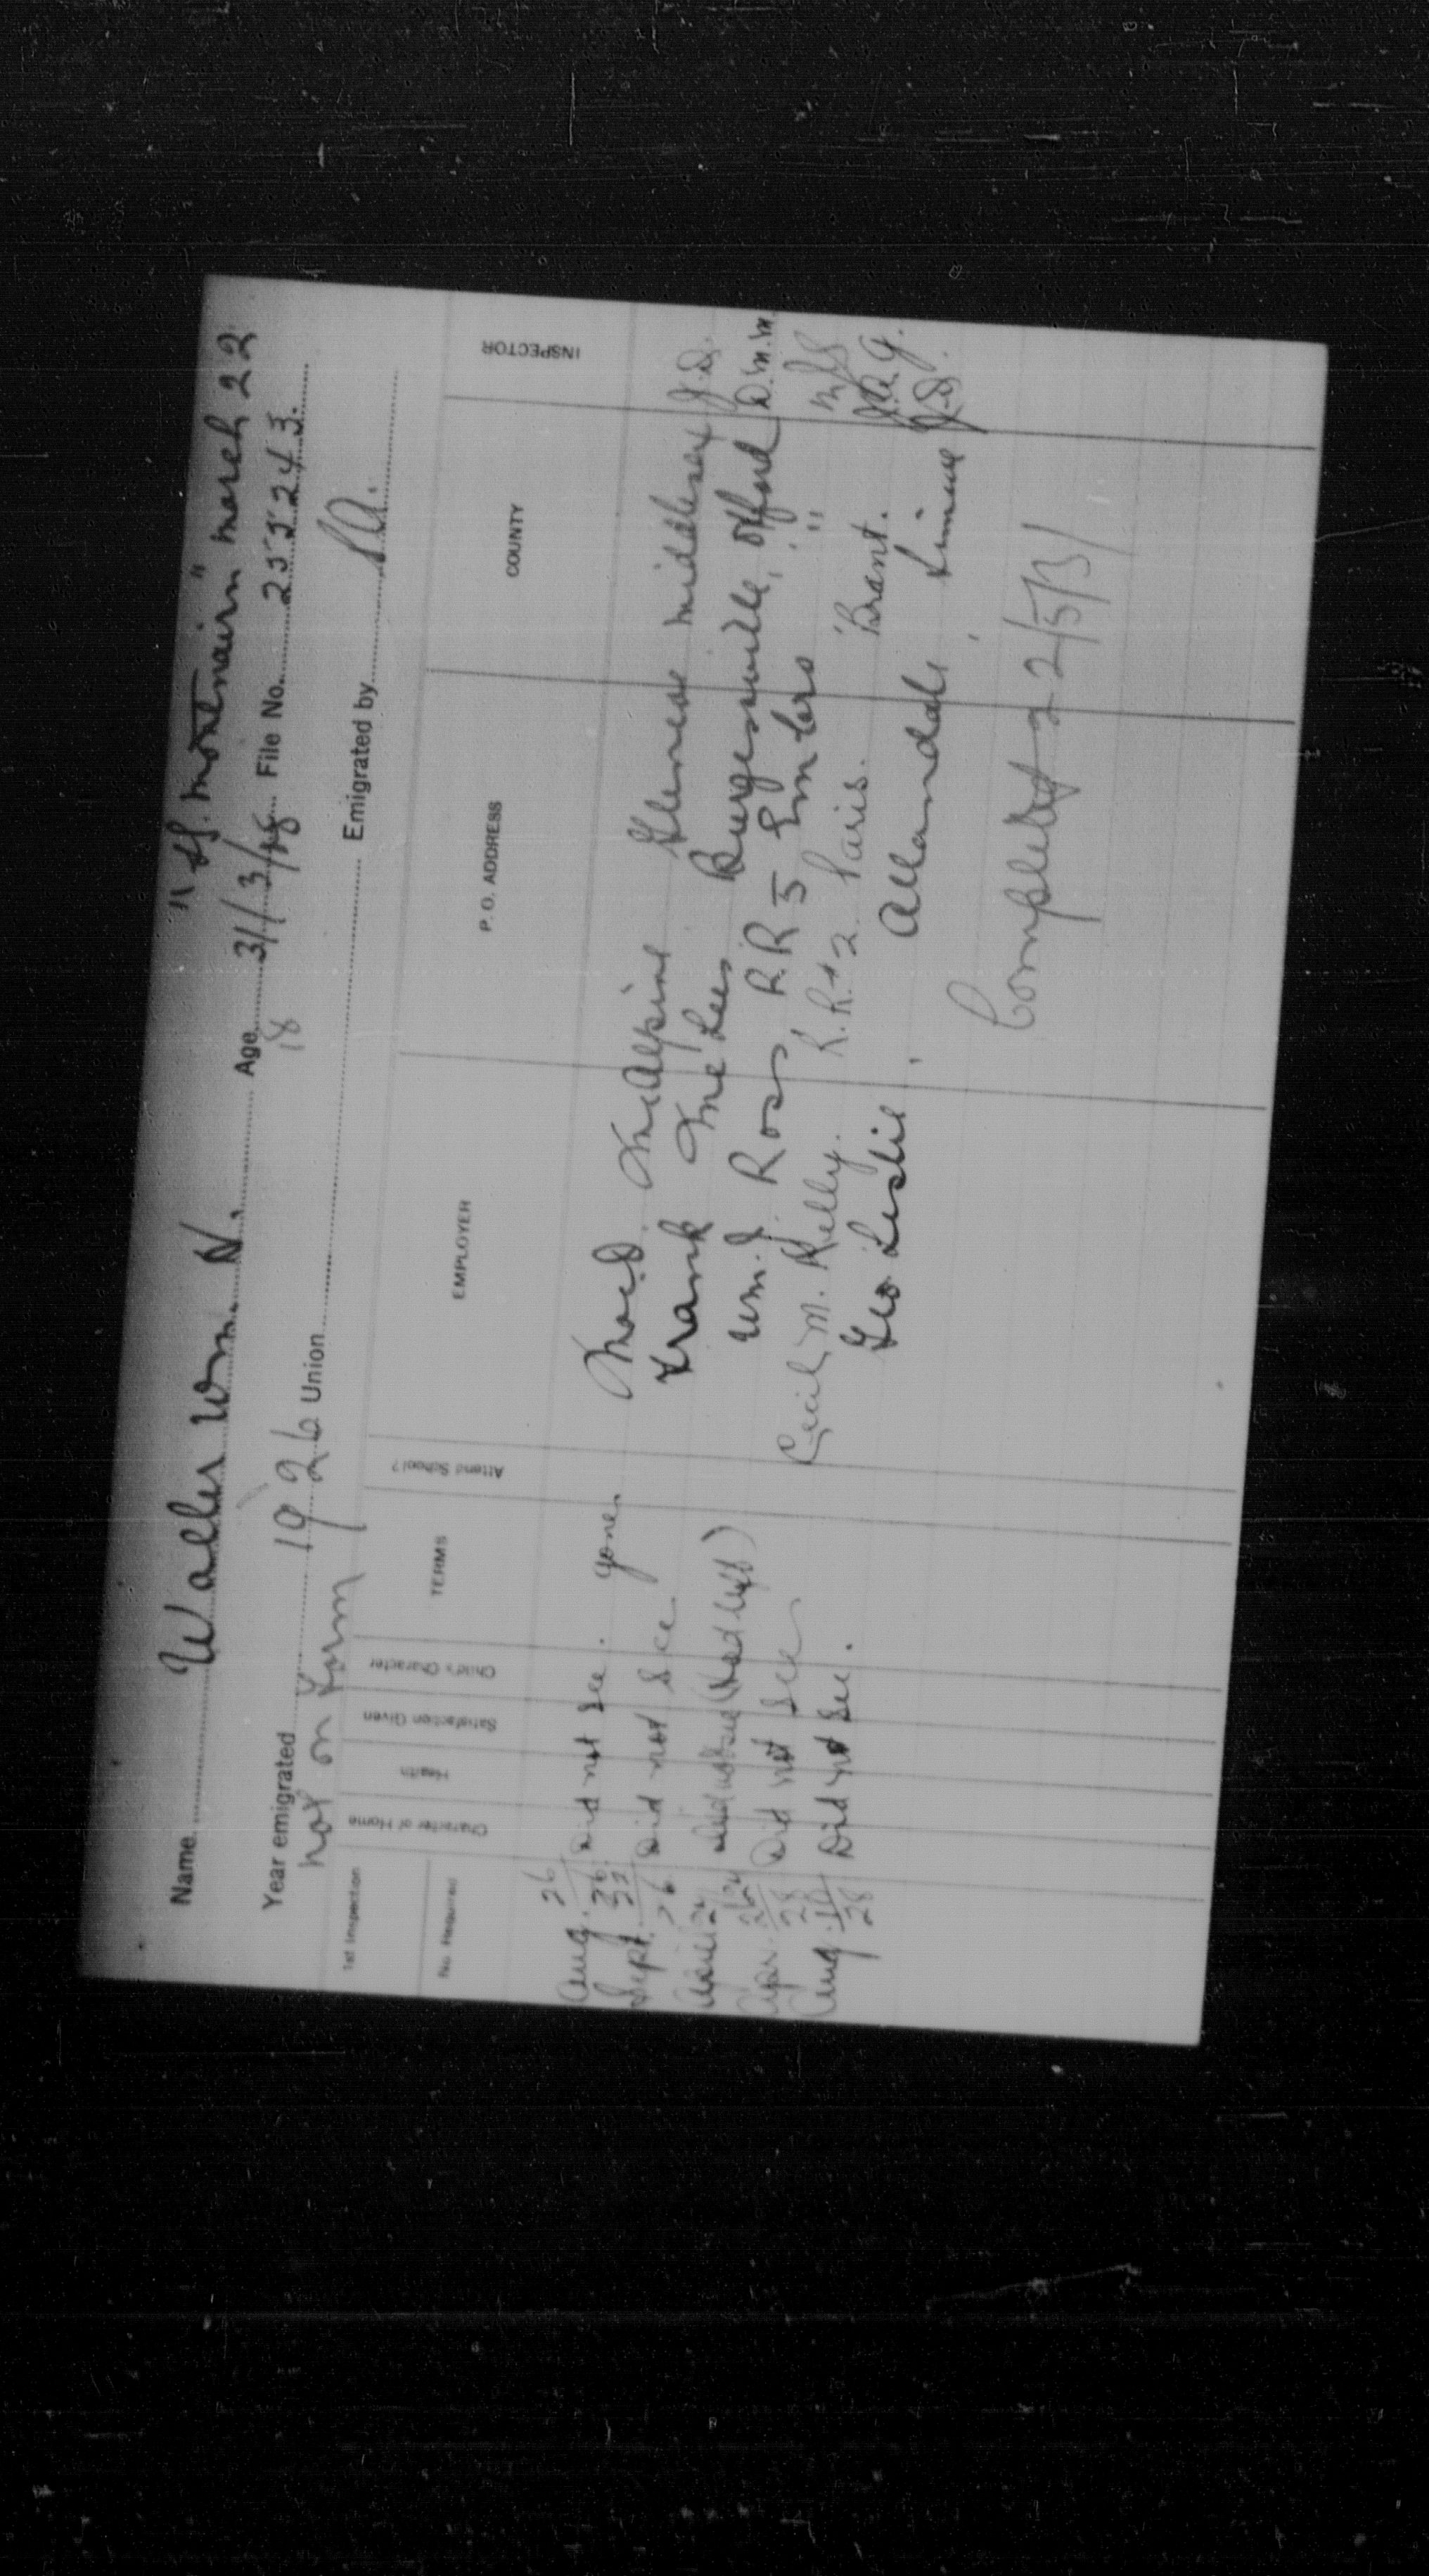 " Sf. Montnairn " March 22
Name Waller Wm. N. Age 31/3/18 File No. 255243.
18
Year emigrated 1926 Union Emigrated by S.A.
not on Farm
1st Inspection
No. Required Character of Home Health Satisfaction Given Child's Character TERMS Attend School? EMPLOYER P. O. ADDRESS COUNTY INSPECTOR
Aug. 26 Did not see. gone McAlpine Glencoe Middlesex J.D.
Sept. 22/26 Did not see Frank McLees Burgessville, Oxford D.M.M.
April Did not see (Had left) Wm. J. Ross R.R 5 Embro " "
Apr. 28 Did not see Cecil M. Kelly. R.R. #2 Paris. Brant.
Aug. 10/28 Did not see. Geo Leslie, Allandale, Simcoe J.D.
Completed 22/5/31